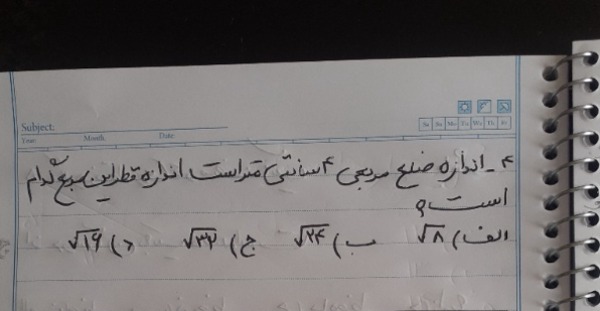 Subject:
Year: Month: Date:
Sa Su Mo Tu We Th Fr
۴_ اندازه ضلع مربعی ۴ سانتی متر است اندازه قطر این مربع کدام
است؟
الف) √۸ ب) √۲۴ ج) √۳۲ د) √۱۶